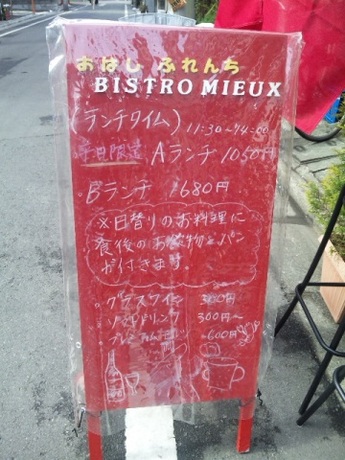 おはし ふれんち
BISTRO MIEUX
(ランチタイム) 11:30~14:00
平日限定 Aランチ 1050円
・Bランチ 1680円
※日替りのお料理に
食後のお飲物とパン
が付きます。
・グラスワイン 300円
・ソフトドリンク 300円~
600円